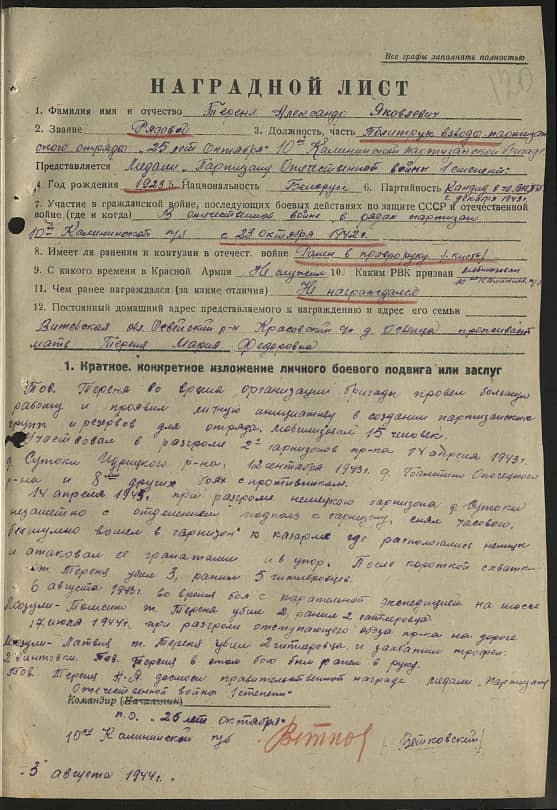 Все графы заполнять полностью
120
НАГРАДНОЙ ЛИСТ
1. Фамилия имя и отчество Тереня Александр Яковлевич
2. Звание Рядовой 3. Должность, часть Политрук взвода партизан
ского отряда „25 лет Октября" 10ой Калининской партизанской бригады
Представляется Медали „Партизану Отечественной войны 1 степени"
4. Год рождения 1923 5. Национальность Беларус 6. Партийность Кандид. в чл. ВКП/б
с декабря 1943 г.
7. Участие в гражданской войне, последующих боевых действиях по защите СССР и отечественной
войне (где и когда) В отечественной войне в рядах партизан
10ой Калининской п/б с 23 октября 1942 г.
8. Имеет ли ранения и контузии в отечест. войне Ранен в правую руку (кисть)
9. С какого времени в Красной Армии Не служил 10. Каким РВК призван мобилизован
11. Чем ранее награждался (за какие отличия) Не награждался
12. Постоянный домашний адрес представляемого к награждению и адрес его семьи
Витебская обл. Освейский р-н Красовский с/с д. проживает
мать Тереня Мария Федоровна
1. Краткое, конкретное изложение личного боевого подвига или заслуг
Тов. Тереня во время организации бригады провел большую
работу и проявил личную инициативу в создании партизанских
групп и резервов для отряда, мобилизовал 15 человек.
Участвовал в разгроме 2х гарнизонов пр-ка 14 апреля 1943 г.
д. Сутоки Идрицкого р-на, 12 сентября 1943 г. д.
р-на и 8 других боях с противником.
14 апреля 1943 г. при разгроме немецкого гарнизона д. Сутоки
незаметно с отделением подполз к гарнизону, снял часового,
бесшумно вошел в гарнизон к казарме где располагались немцы
и атаковал ее гранатами и в упор. После короткой схватки
т. Тереня убил 3, ранил 5 гитлеровцев.
6 августа 1943 г. во время боя с карательной экспедицией на шоссе
т. Тереня убил 2, ранил 2 гитлеровца.
17 июля 1944 г. при разгроме отступающего обоза пр-ка на дороге
Латвия т. Тереня убил 2 гитлеровца и захватил трофеи:
2 винтовки. Тов. Тереня в этом бою был ранен в руку.
Тов. Тереня А.Я. достоин правительственной награды медали „Партизану
Отечественной войны 1 степени"
Командир (Начальник)
п.о. „25 лет октября"
10ой Калининской п/б (Ветковский)
„3" августа 1944 г.